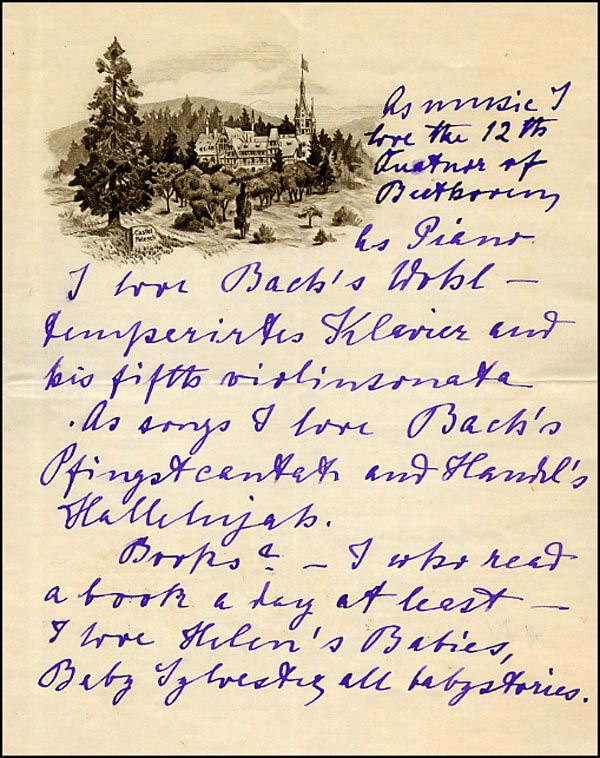 As music I
love the 12th
Quatuor of
Beethoven,
Castel
Pelesch
As Piano
I love Bach's Wohl-
temperirtes Klavier and
his fifth violinsonata
. As songs I love Bach's
Pfingstcantate and Handel's
Hallelujah.
Books? — I who read
a book a day at least —
I love Helen's Babies,
Baby Sylvester, all babystories.